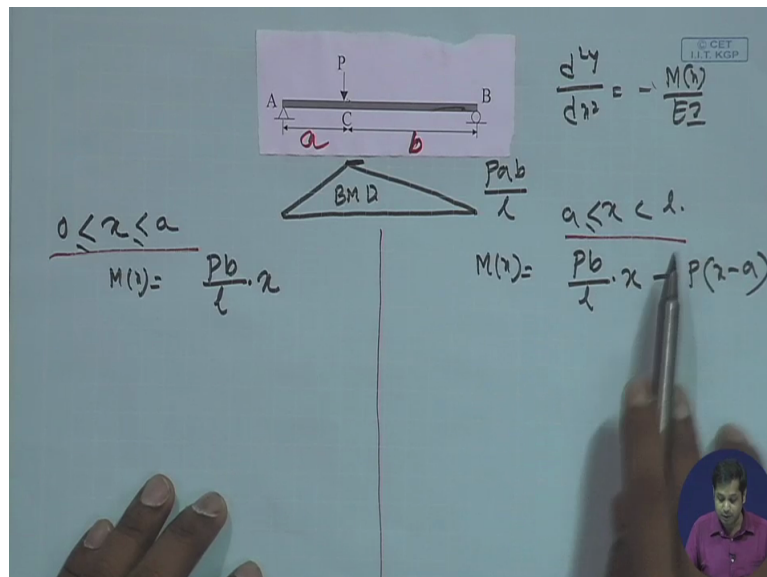 © CET
I.I.T. KGP
P
A
B
C
a
b
d²y/dx² = - M(x)/EI
BMD
Pab/l
0 ≤ x ≤ a
M(x) = Pb/l · x
a ≤ x < l.
M(x) = Pb/l · x - P(x-a)